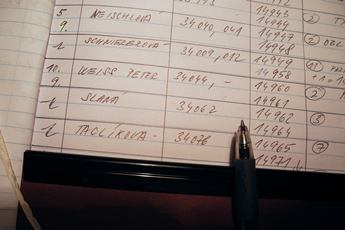 5 14943
9. NEISCHLOVÁ 34040, 041 14944 2
14947
i SCHNIEREROVÁ 34009, 012 14948 2 OBL
14949
10. WEISS PETER 34044, - 14958 +1=1
9. 14960 2
i SLANÁ 34062 14961
14962 3
i TACLÍKOVÁ 34076 14964
14965 7
14971